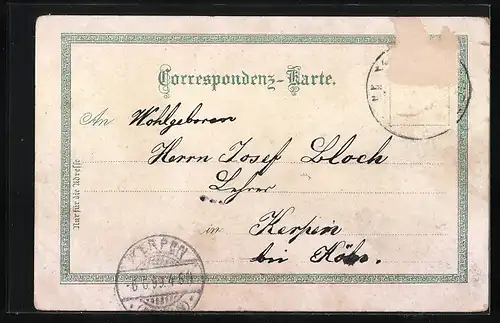 Correspondenz-Karte.
An Wohlgeboren
Herrn Josef Bloch
Lehrer
in Kerpen
bei Köln.
Nur für die Adresse
KERPEN